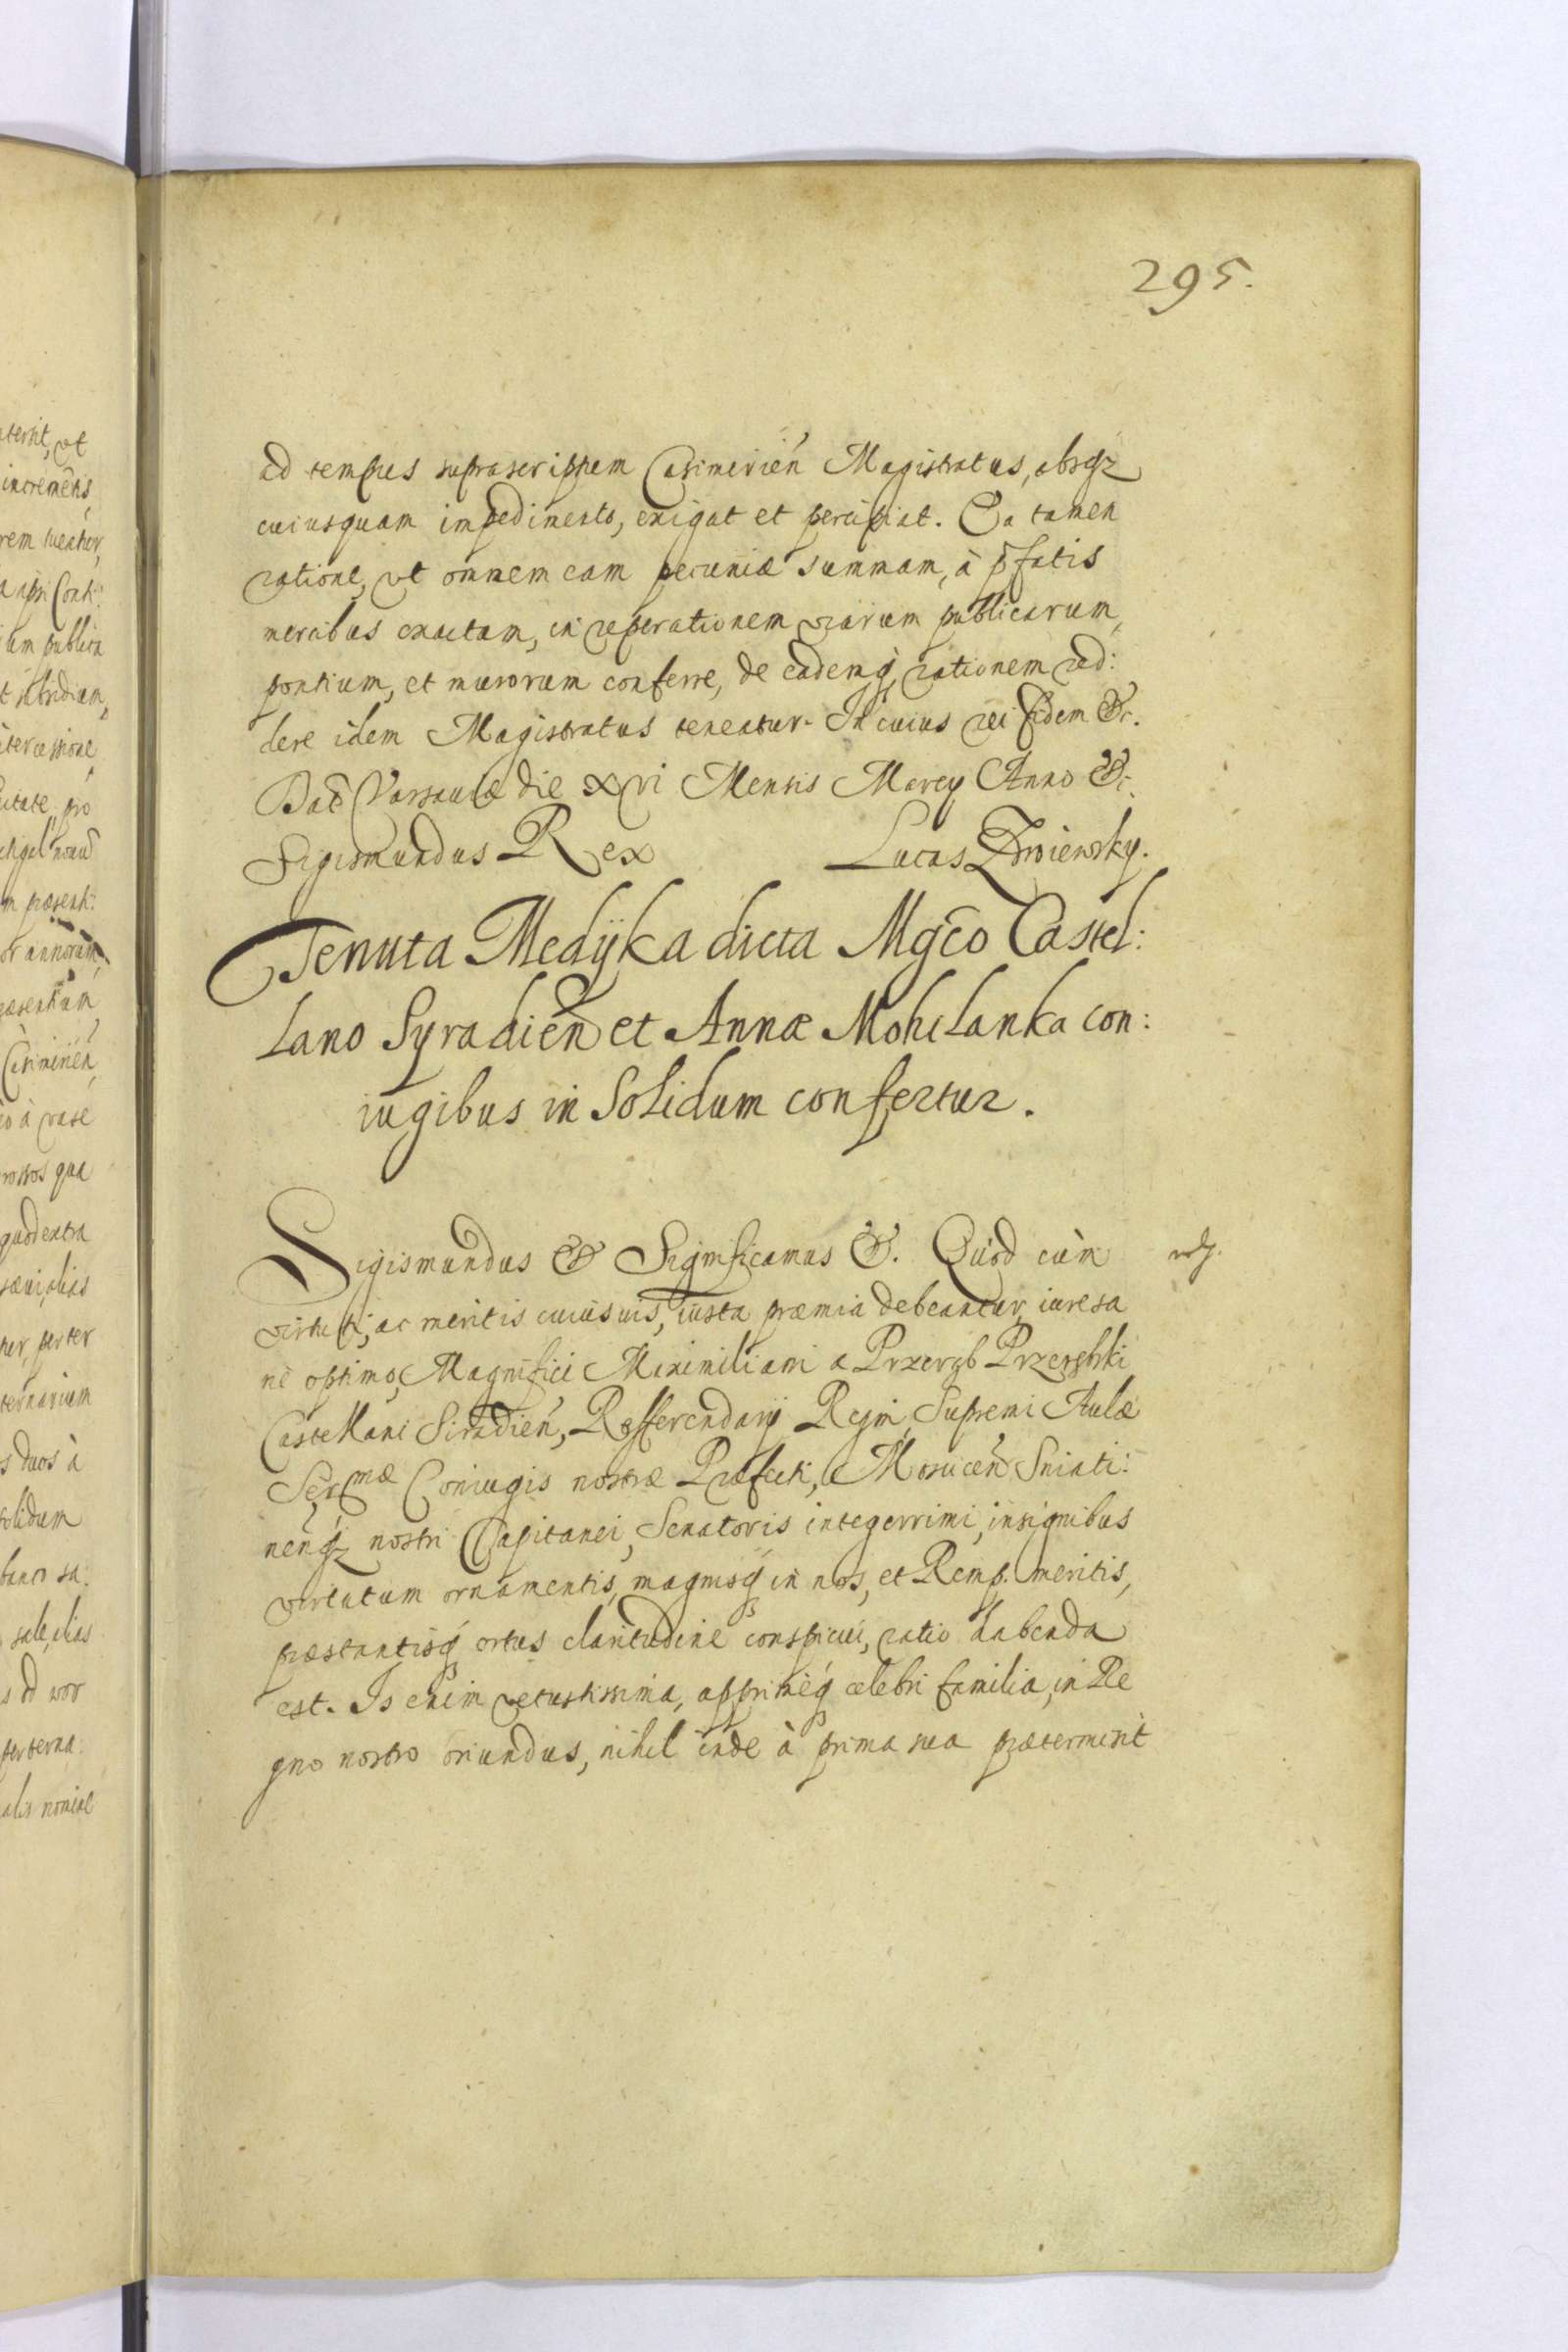 295.
ad tempus suprascriptum Casimirien̄ Magistratus, absqz
cuiusquam impedimento, exigat et percipiat. Ea tamen
ratione, vt omnem eam pecuniæ summam, à p̄fatis
mercibus exactam, in reperationem viarum publicarum,
pontium, et murorum conferre, de eademq́ rationem red:
dere idem Magistratus teneatur. In cuius rei fidem &c.
Dat̄ Varsauiæ die xvi Mensis Marcy Anno &c.
Sigismundus Rex Lucas
Tenuta Medÿka dicta Mgc̄o Castel:
lano Syradien̄ et Annæ Mohilanka con:
iugibus in Solidum confertur.
Sigismundus &c Significamus &. Quod cùm
virtuti, ac meritis cuiusuis, iusta præmia debeantur, iure sa
nè optimo, Magnifici Maximiliani a Przerąb Przerębski
Castellani Siradien̄, Refferendarÿ Regni, Supremi Aulæ
Serᵐᵃᵉ Coniugis nostræ Præfecti, Mosticen̄ Sniati:
nen̄qz nostri Capitanei, Senatoris integerrimi, insignibus
virtutum ornamentis, magnisq́ in nos, et Remp. meritis,
præstantisq́ ortus claritudine conspicui, ratio habenda
est. Is enim vetustissima, apprimèq́ celebri familia, in Re
gno nostro oriundus, nihil inde à prima sua prætermisit